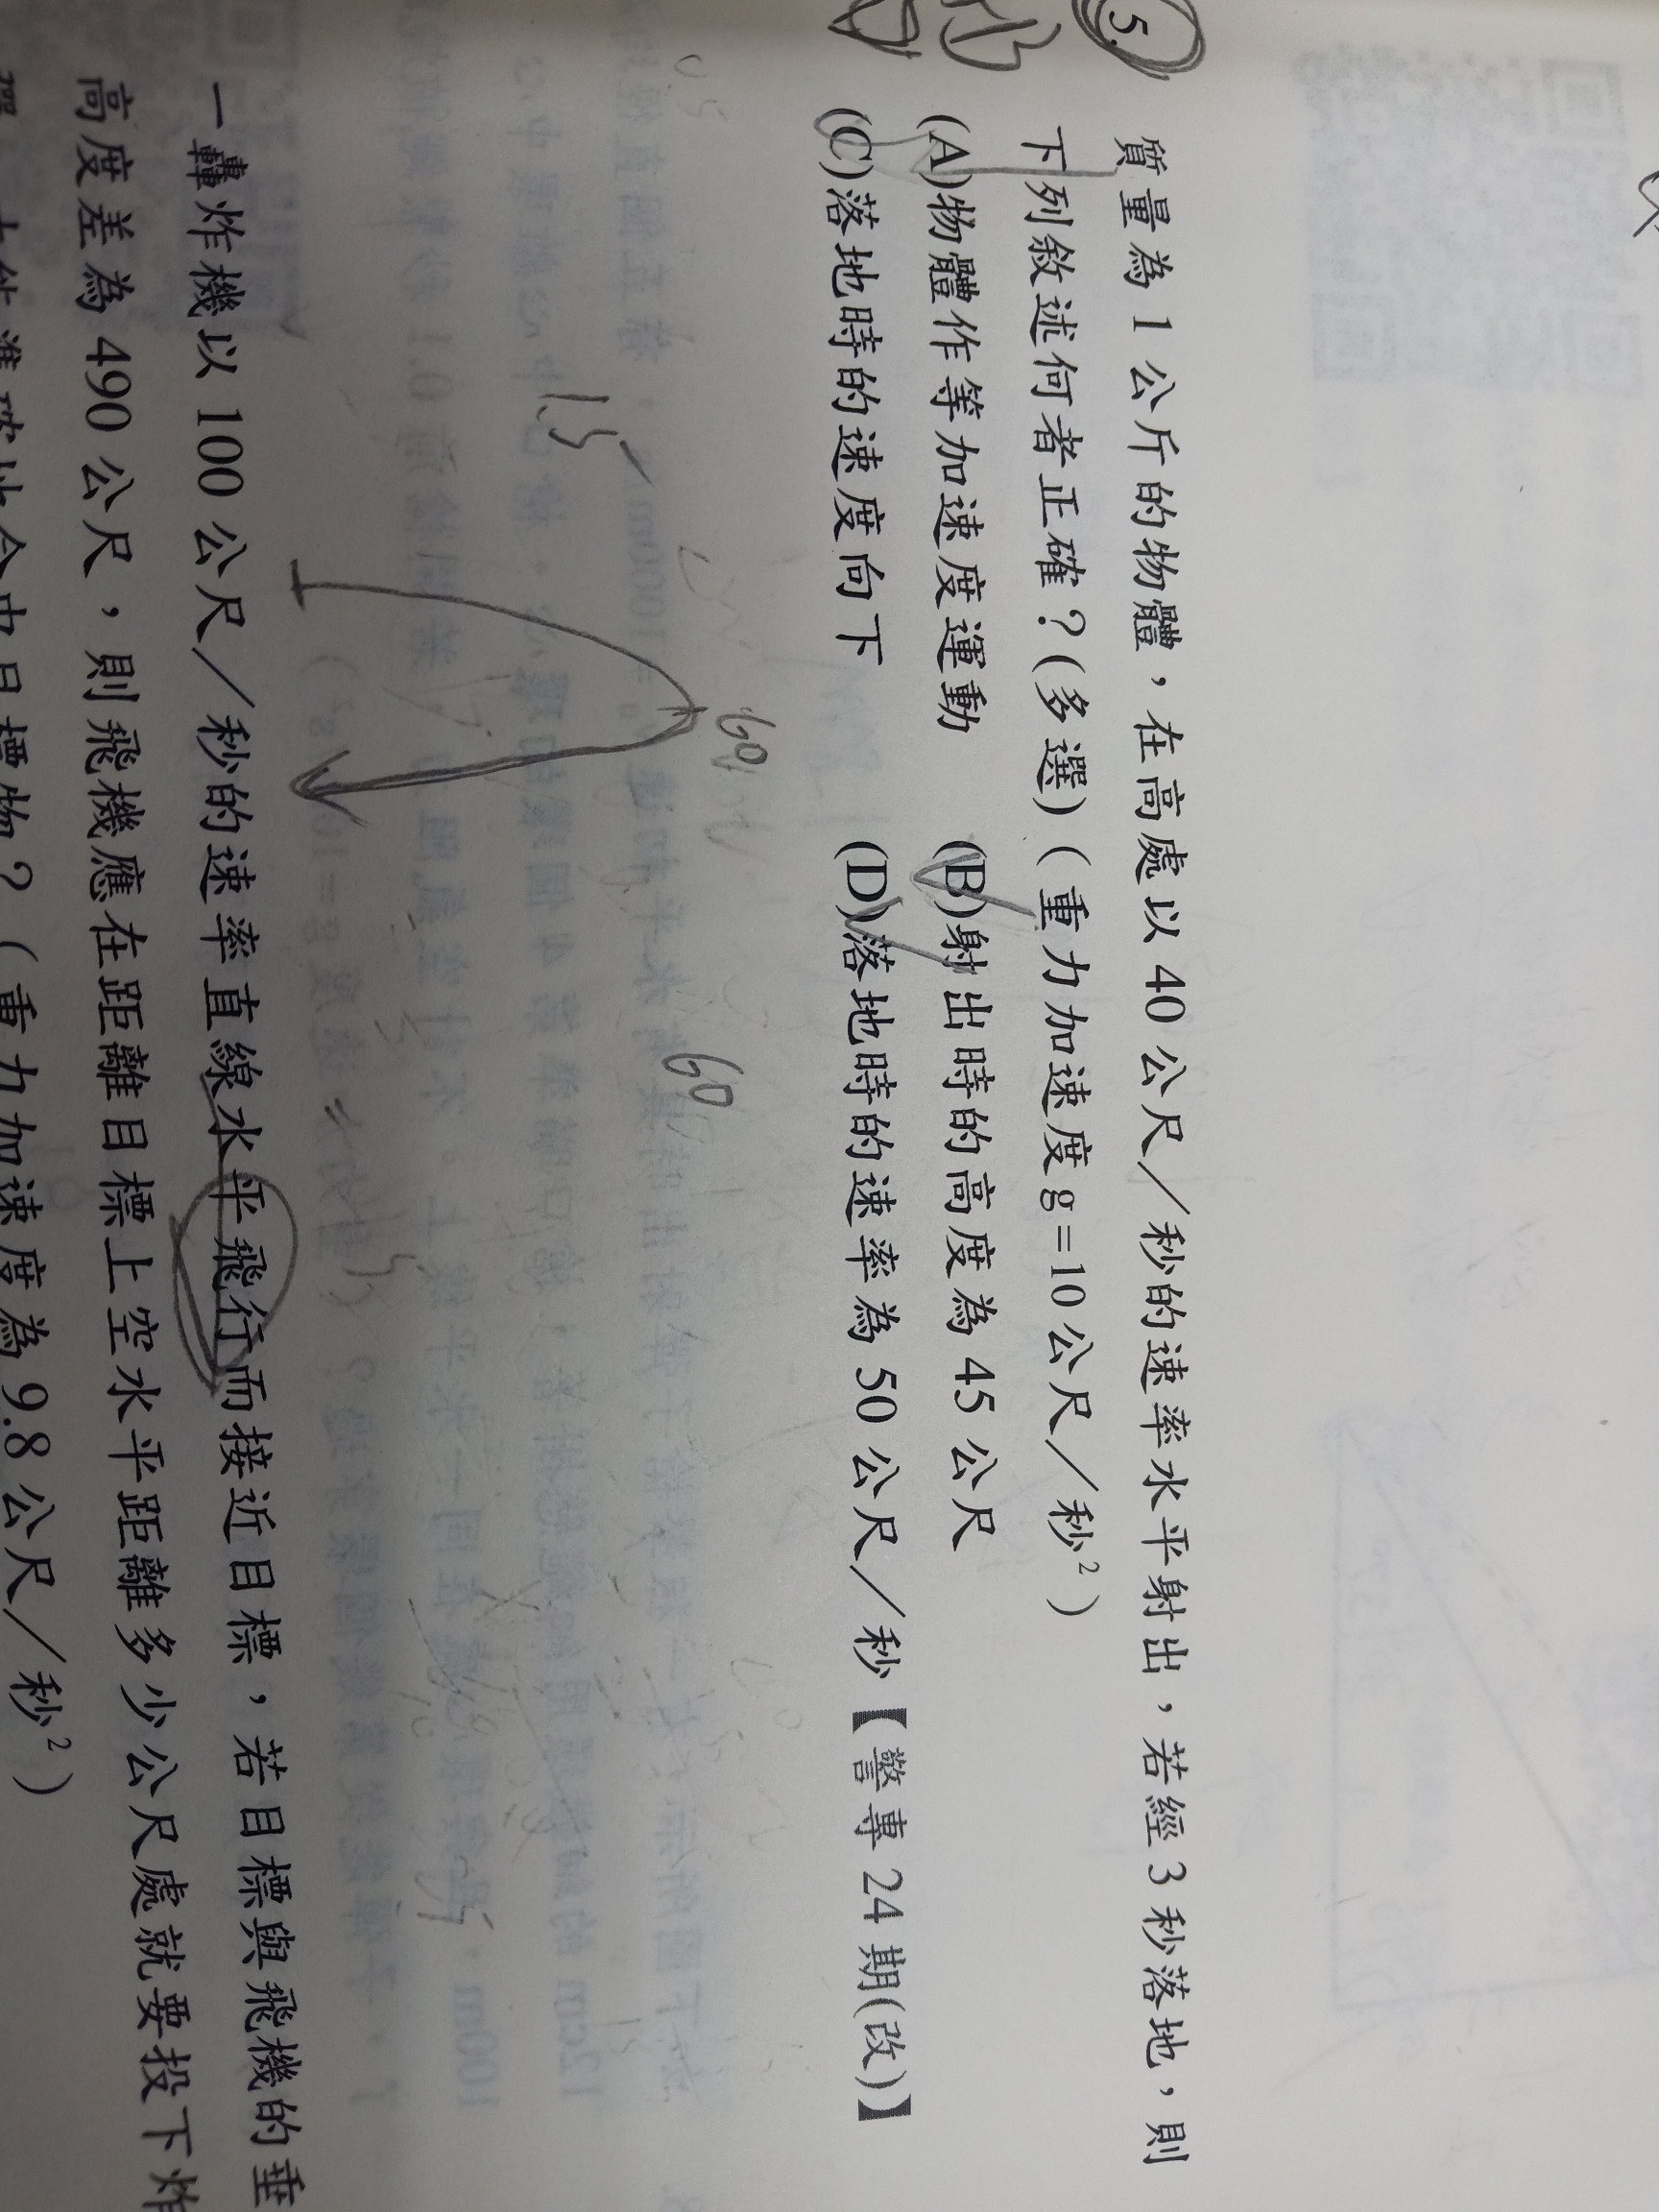 5.
質量為1公斤的物體，在高處以40公尺／秒的速率水平射出，若經3秒落地，則
下列敘述何者正確？(多選)（重力加速度g=10公尺／秒²）
(A)物體作等加速度運動 (B)射出時的高度為45公尺
(C)落地時的速度向下 (D)落地時的速率為50公尺／秒【警專24期(改)】
15
60
60
一轟炸機以100公尺／秒的速率直線水平飛行而接近目標，若目標與飛機的垂
高度差為490公尺，則飛機應在距離目標上空水平距離多少公尺處就要投下炸
中目標物？（重力加速度為9.8公尺／秒²）